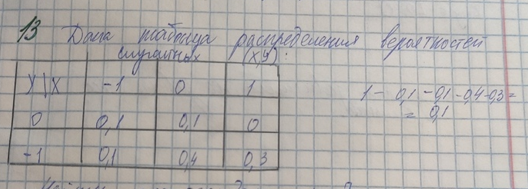 13 Дана таблица распределения вероятностей
случайных (x y).
Y\X -1 0 1
0 0,1 0,1 0
-1 0,1 0,4 0,3
1 - 0,1 - 0,1 - 0,4 - 0,3 =
= 0,1